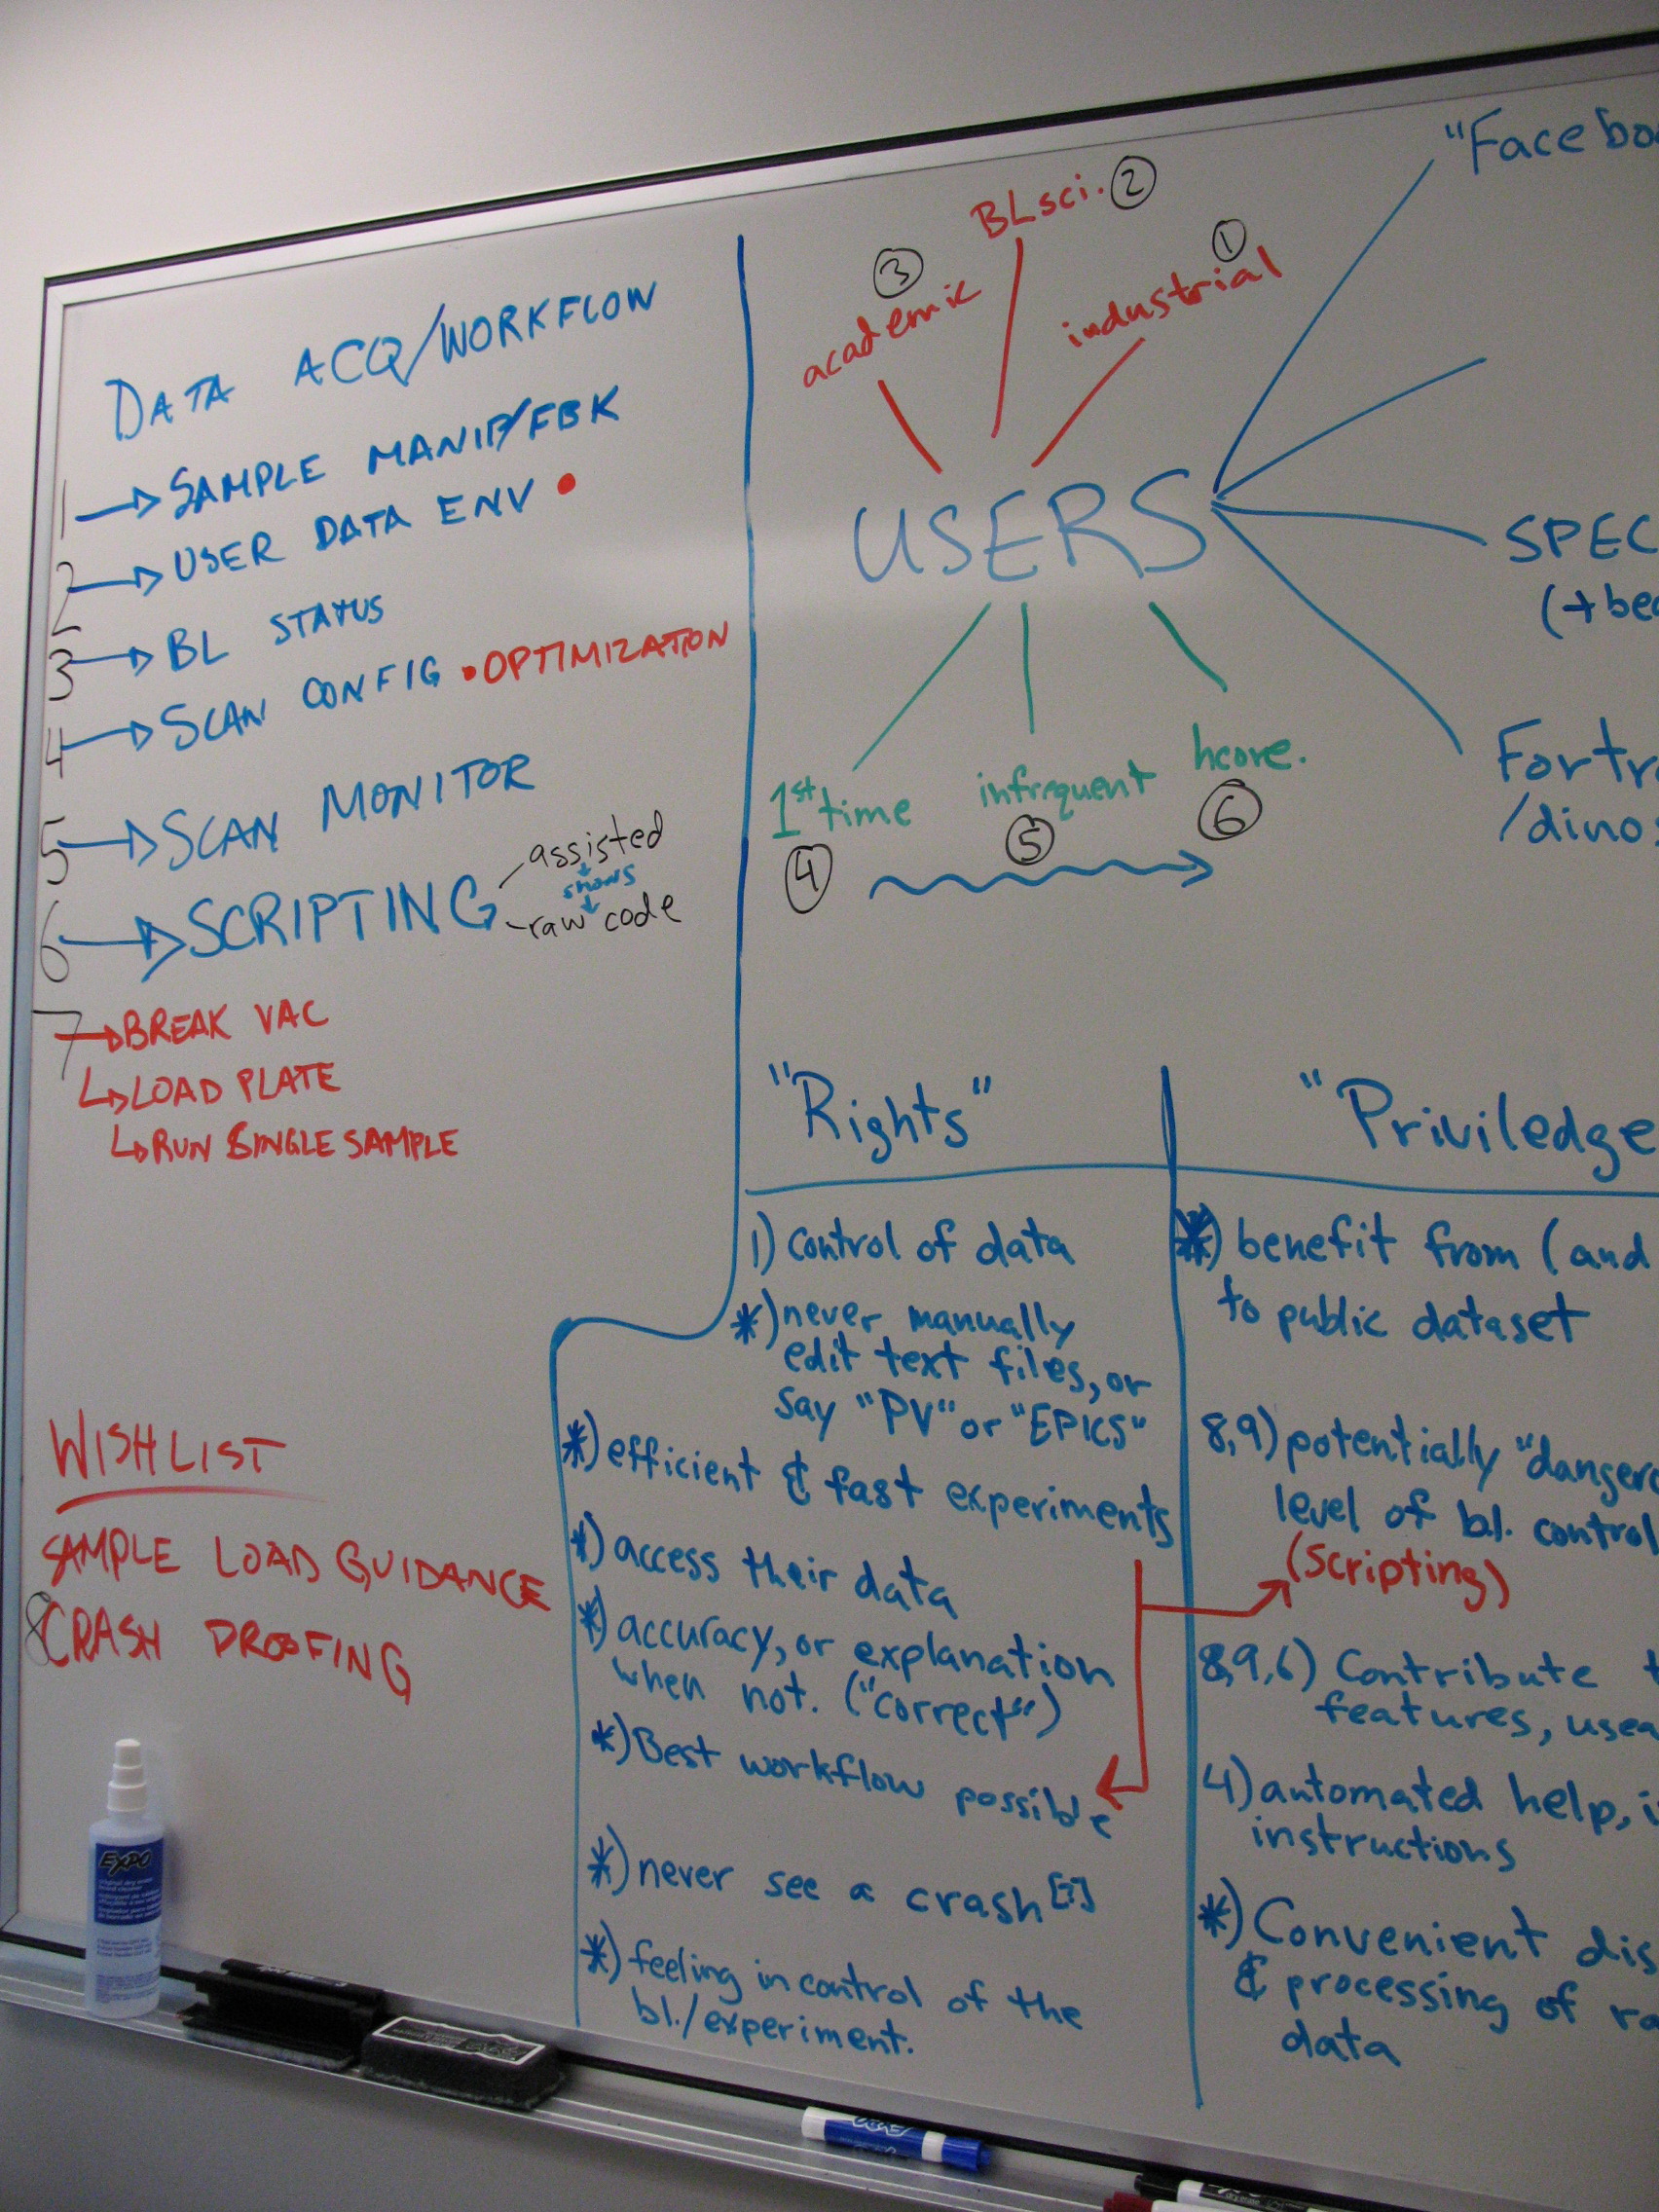 DATA ACQ/WORKFLOW
1 → SAMPLE MANIP/FBK
2 → USER DATA ENV •
3 → BL STATUS
4 → SCAN CONFIG • OPTIMIZATION
5 → SCAN MONITOR
6 → SCRIPTING
assisted
shows
raw code
7 → BREAK VAC
↳ LOAD PLATE
↳ RUN SINGLE SAMPLE
WISHLIST
SAMPLE LOAD GUIDANCE
8 CRASH PROOFING
academic ③
BLsci. ②
industrial ①
USERS
"Facebo
SPEC
(+bea
Fortra
/dinos
1st time ④
infrequent ⑤
hcore. ⑥
"Rights"
1) control of data
*) never manually
edit text files, or
say "PV" or "EPICS"
*) efficient & fast experiments
*) access their data
*) accuracy, or explanation
when not. ("correct")
*) Best workflow possible
*) never see a crash [?]
*) feeling in control of the
bl./experiment.
"Priviledge
*) benefit from (and
to public dataset
8,9) potentially "dangero
level of b.l. control
(scripting)
8,9,6) Contribute t
features, usea
4) automated help, i
instructions
*) Convenient dis
& processing of ra
data
EXPO